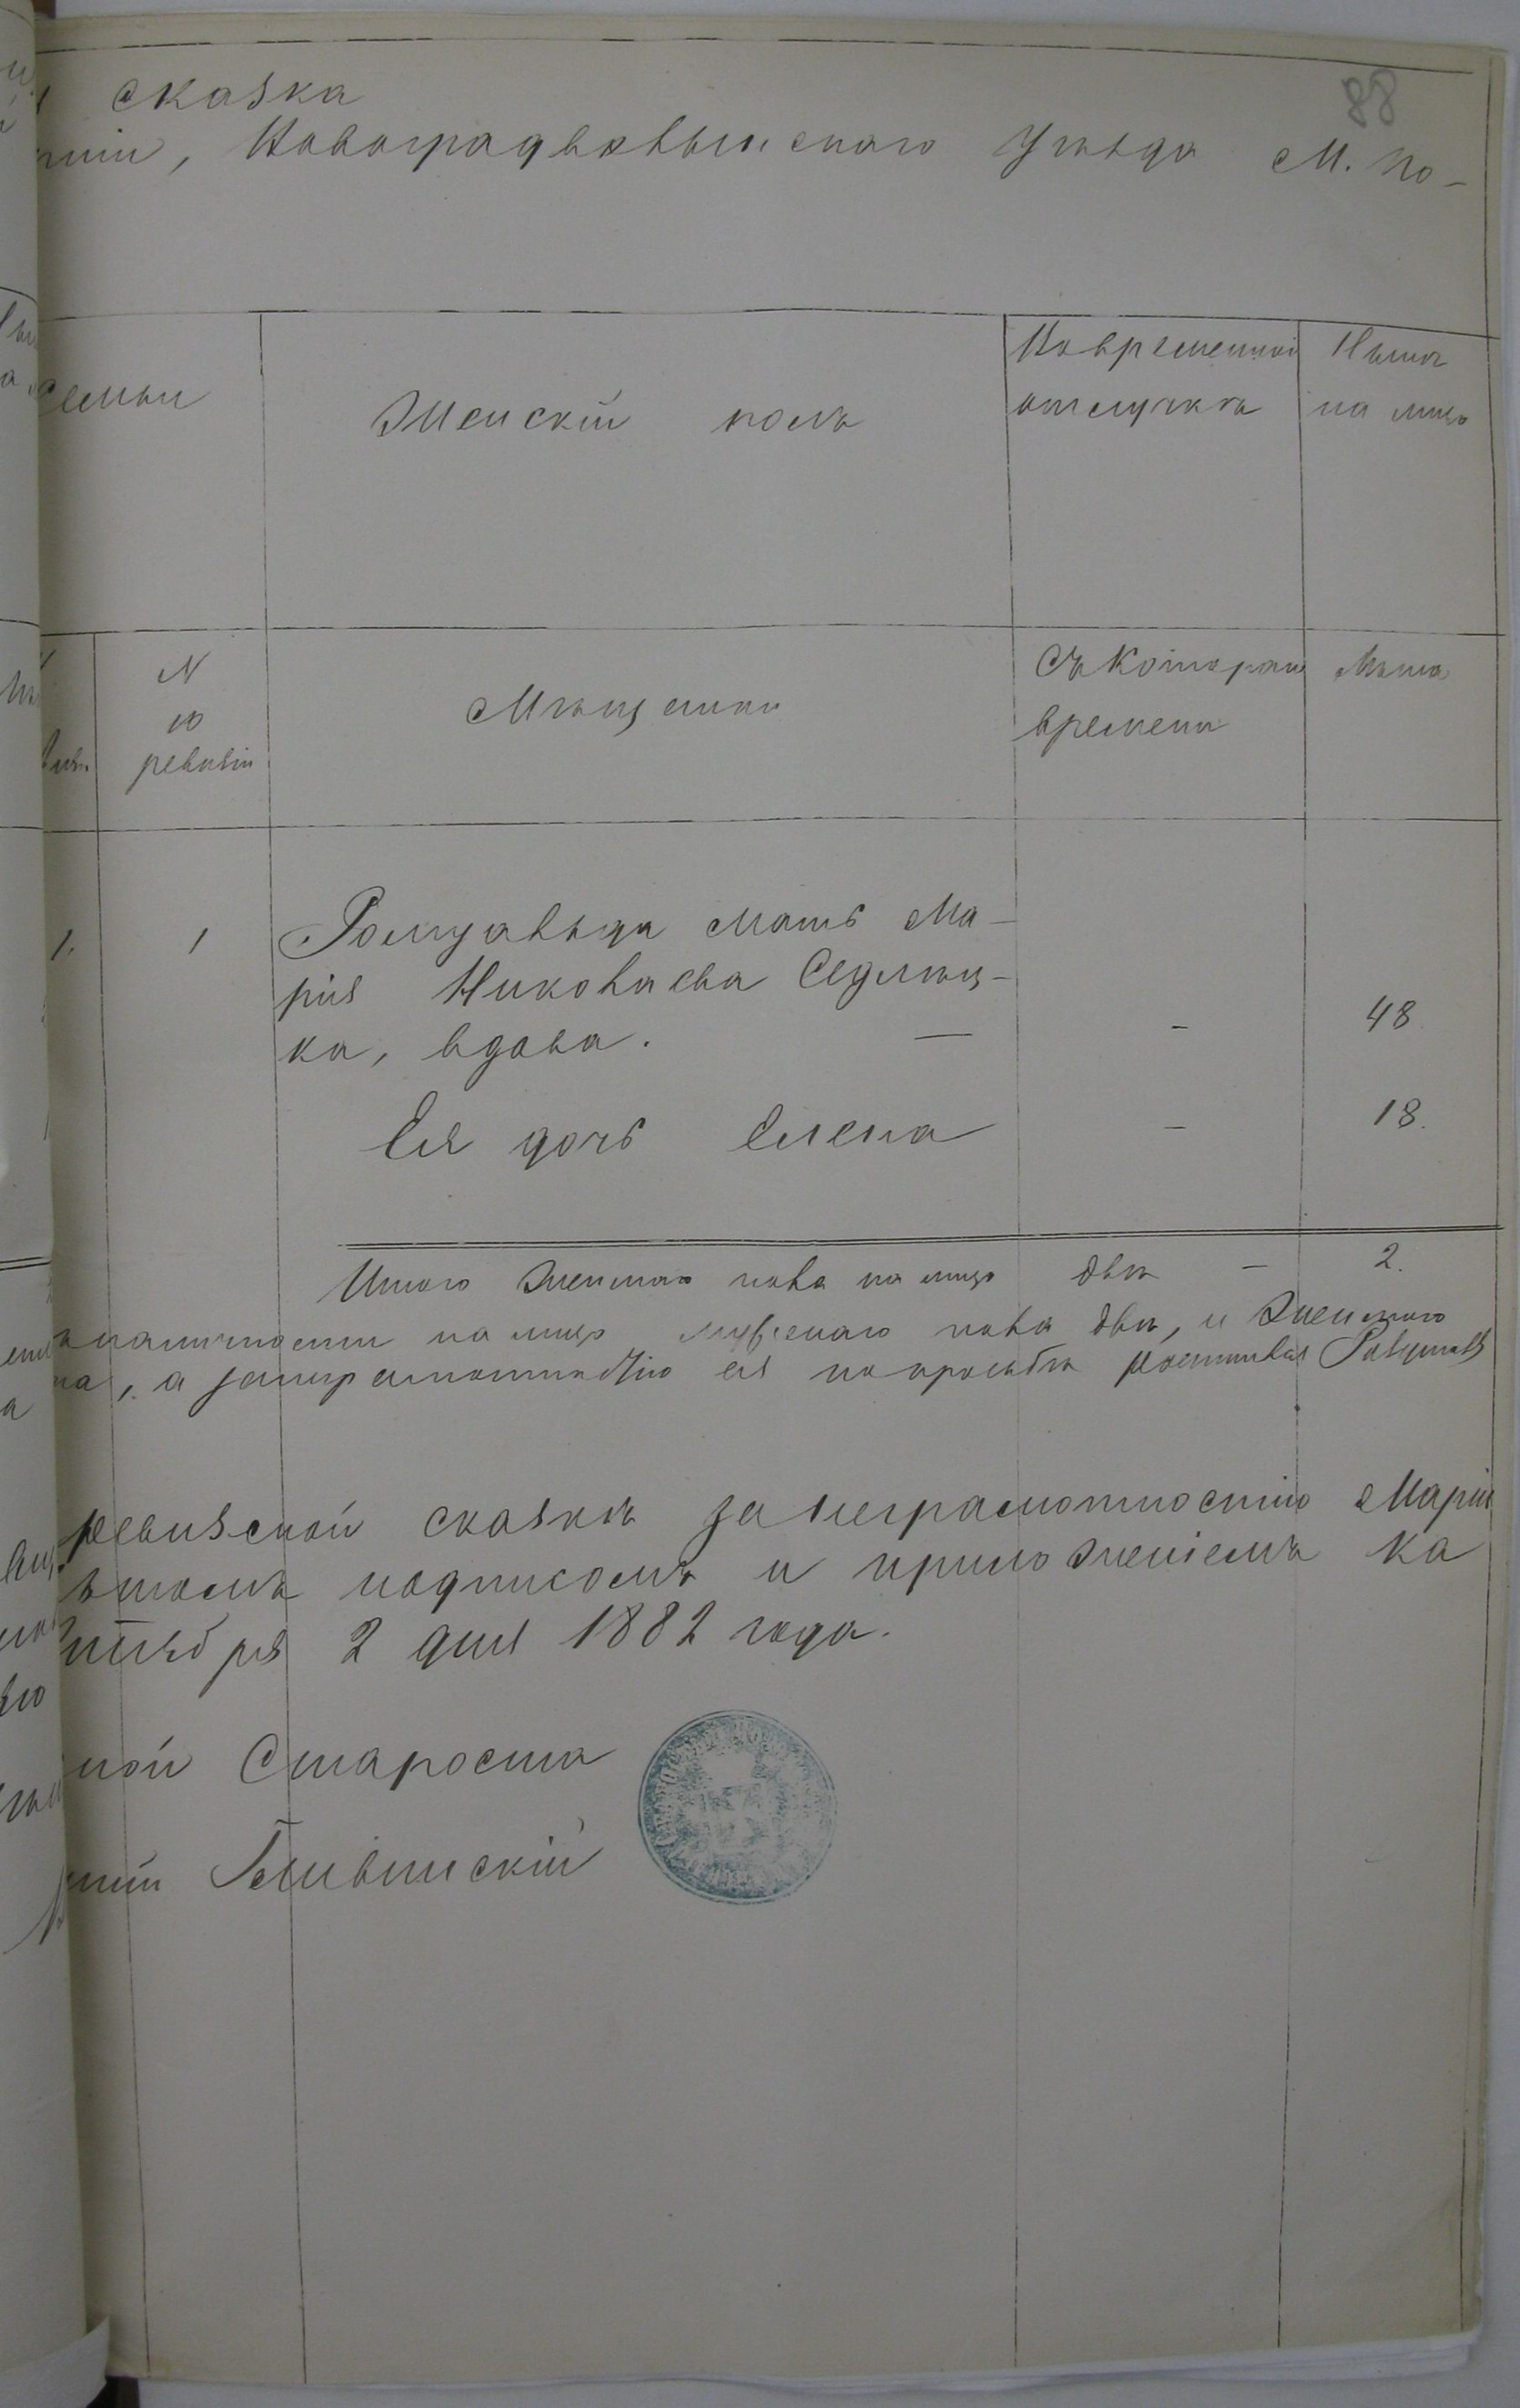 88
сказка
Новоградволынскаго Уѣзда М. По-
семьи
Женскій полъ
Во временной
отлучкѣ
Нынѣ
на лицо
N
10
ревизіи
Мѣщанки
Съ котораго
времени
Лѣта
1.
1
Ромуальда мать Ма-
рія Николаева Седлец-
ка, вдова. —
-
48.
Ея дочь Елена
-
18.
Итого Женскаго пола на лицо двѣ - 2.
на лицо мужскаго пола два, и Женскаго
а за неграмотностію ея по просьбѣ
ревизской сказкѣ за неграмотностію Маріи
подписомъ и приложеніемъ ка
2 дня 1882 года.
ной Староста